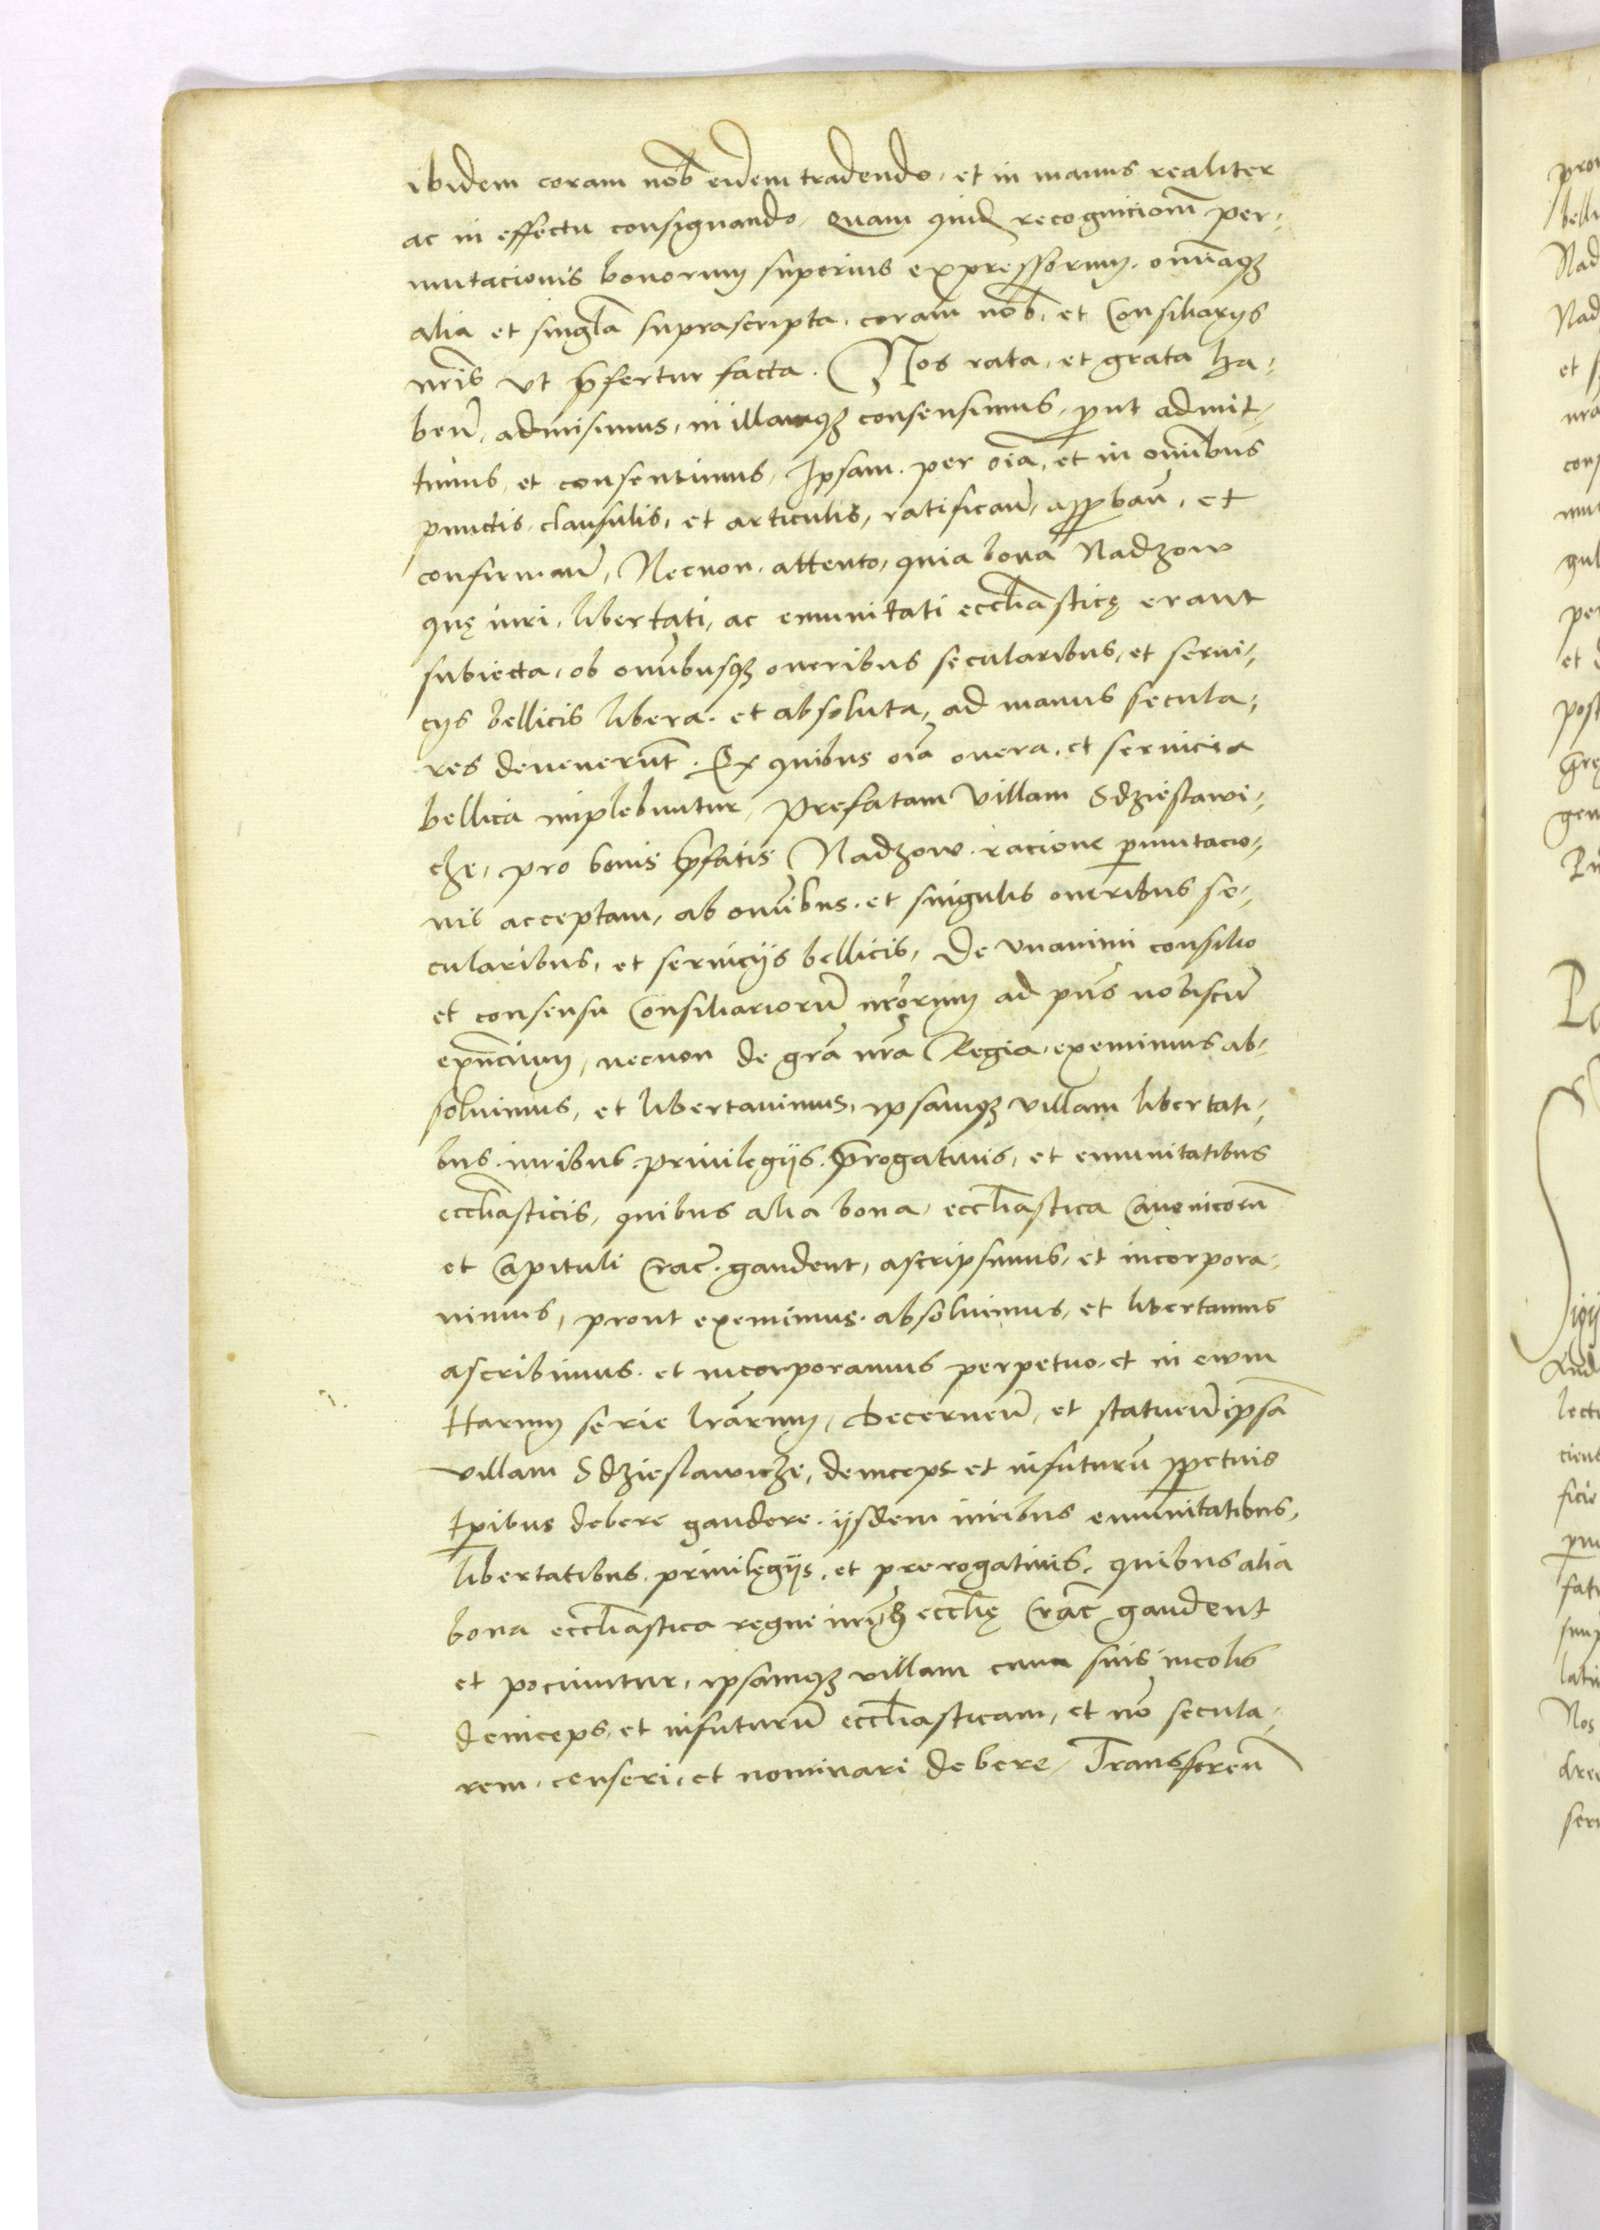 ibidem coram nob̄ eidem tradendo, et in manus realiter
ac in effectu consignando. Quam quid̄ recognicionē per-
mutacionis bonorum superius expressorum. omniaq3
alia et singl̄a suprascripta, coram nob̄, et Consiliarijs
nr̄is vt p̄fertur facta. Nos rata, et grata ha-
ben̄, admisimus, in illamq3 consensimus, prout admit-
timus, et consentimus, Ipsam. per oīa, et in omībus
punctis, clausulis, et articulis, ratifican̄, approban̄, et
confirman̄, Necnon. attento, quia bona Nadzow
quę iuri, libertati, ac emunitati eccl̄iasticę erant
subiecta, ob omībusq3 oneribus secularibus, et serui-
cijs bellicis libera. et absoluta, ad manus secula-
res deuenerūt. Ex quibus oīa onera, et seruicia
bellica implebuntur, Prefatam villam Sdzieslawi-
cze, pro bonis p̄fatis Nadzow. racione p̄mutacio-
nis acceptam, ab omībus. et singulis oneribus se-
cularibus, et seruicijs bellicis, De vnanimi consilio
et consensu Consiliariorū nr̄orum ad pn̄s nobiscū
exn̄cium, necnon de gr̄a nr̄a Regia, exemimus ab-
soluimus, et libertauimus, ipsamq3 villam libertati-
bus. iuribus. priuilegijs. p̄rogatiuis, et emunitatibus
eccl̄iasticis, quibus alia bona, eccl̄iastica Canonicorū
et Capituli Crac̄. gaudent, ascripsimus, et incorpora-
uimus, prout exemimus. absoluimus, et libertamus
ascribimus. et incorporamus perpetuo. et in ewm
Harum serie lr̄arum, Decernen̄, et statuen̄ ipsā
villam Sdzieslawicze, deinceps et infuturū ppetuis
tp̄ibus debere gaudere. ijsdem iuribus emunitatibus,
libertatibus. priuilegijs, et prerogatiuis, quibus alia
bona eccl̄iastica regni eccl̄ię Crac̄ gaudent
et pociuntur, ipsamq3 villam cum suis incolis
deinceps, et infuturū eccl̄iasticam, et nō secula-
rem. censeri, et nominari debere, Transferen̄